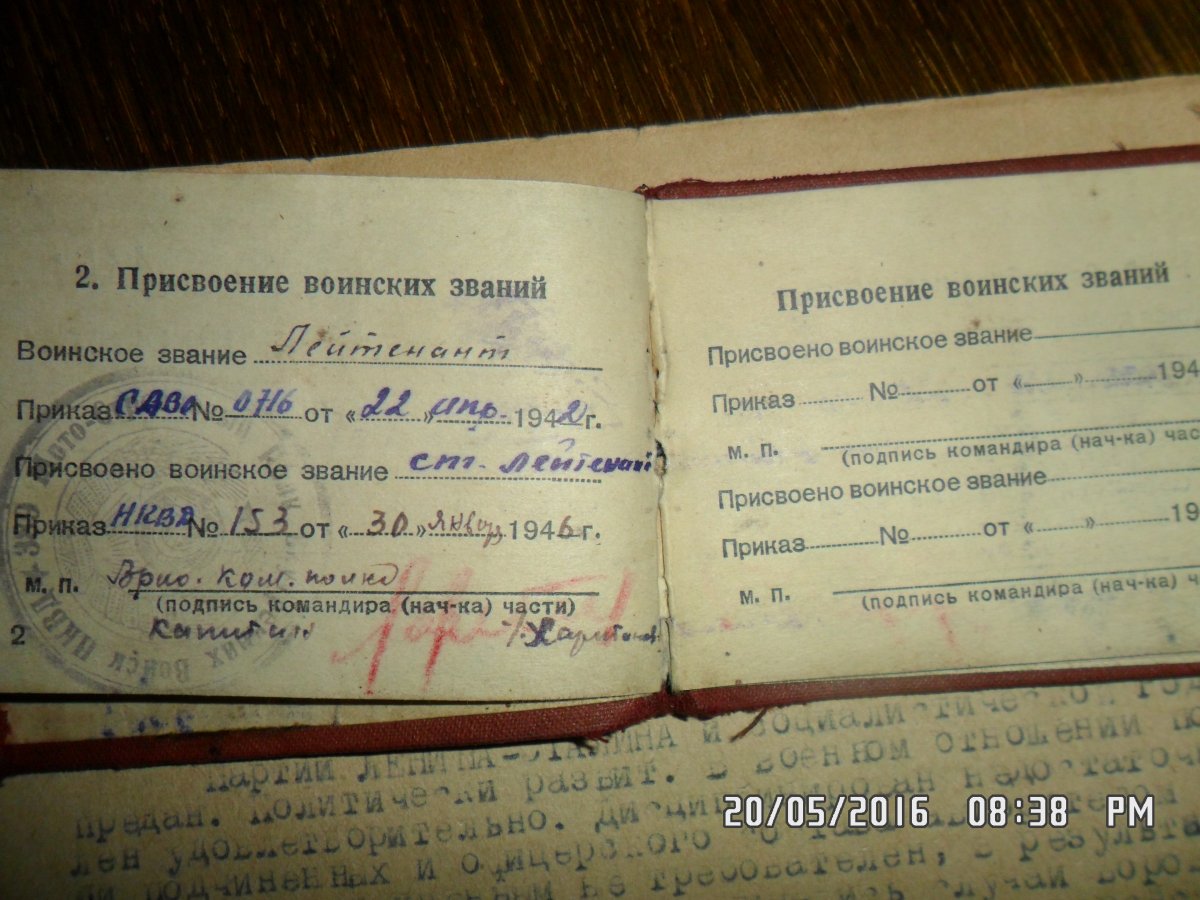 2. Присвоение воинских званий
Воинское звание Лейтенант
Приказ САВО № 0716 от « 22 » апр. 1942 г.
Присвоено воинское звание ст. лейтенант
Приказ НКВД № 153 от « 30 » январ 1946 г.
м. п. Врио. ком. полка
(подпись командира (нач-ка) части)
капитан Харитонов
2
Войск НКВД
Присвоение воинских званий
Присвоено воинское звание
Приказ № от « » 194
м. п.
(подпись командира (нач-ка) час
Присвоено воинское звание
Приказ № от « » 19
м. п.
(подпись командира (нач-ка) ч
партии ЛЕНИНА-СТАЛИНА и социалистической
предан. Политически развит. В военном отношении
лен удовлетворительно.
подчиненных и офицерского
не требователен, в результа
случаи
20/05/2016 08:38 PM